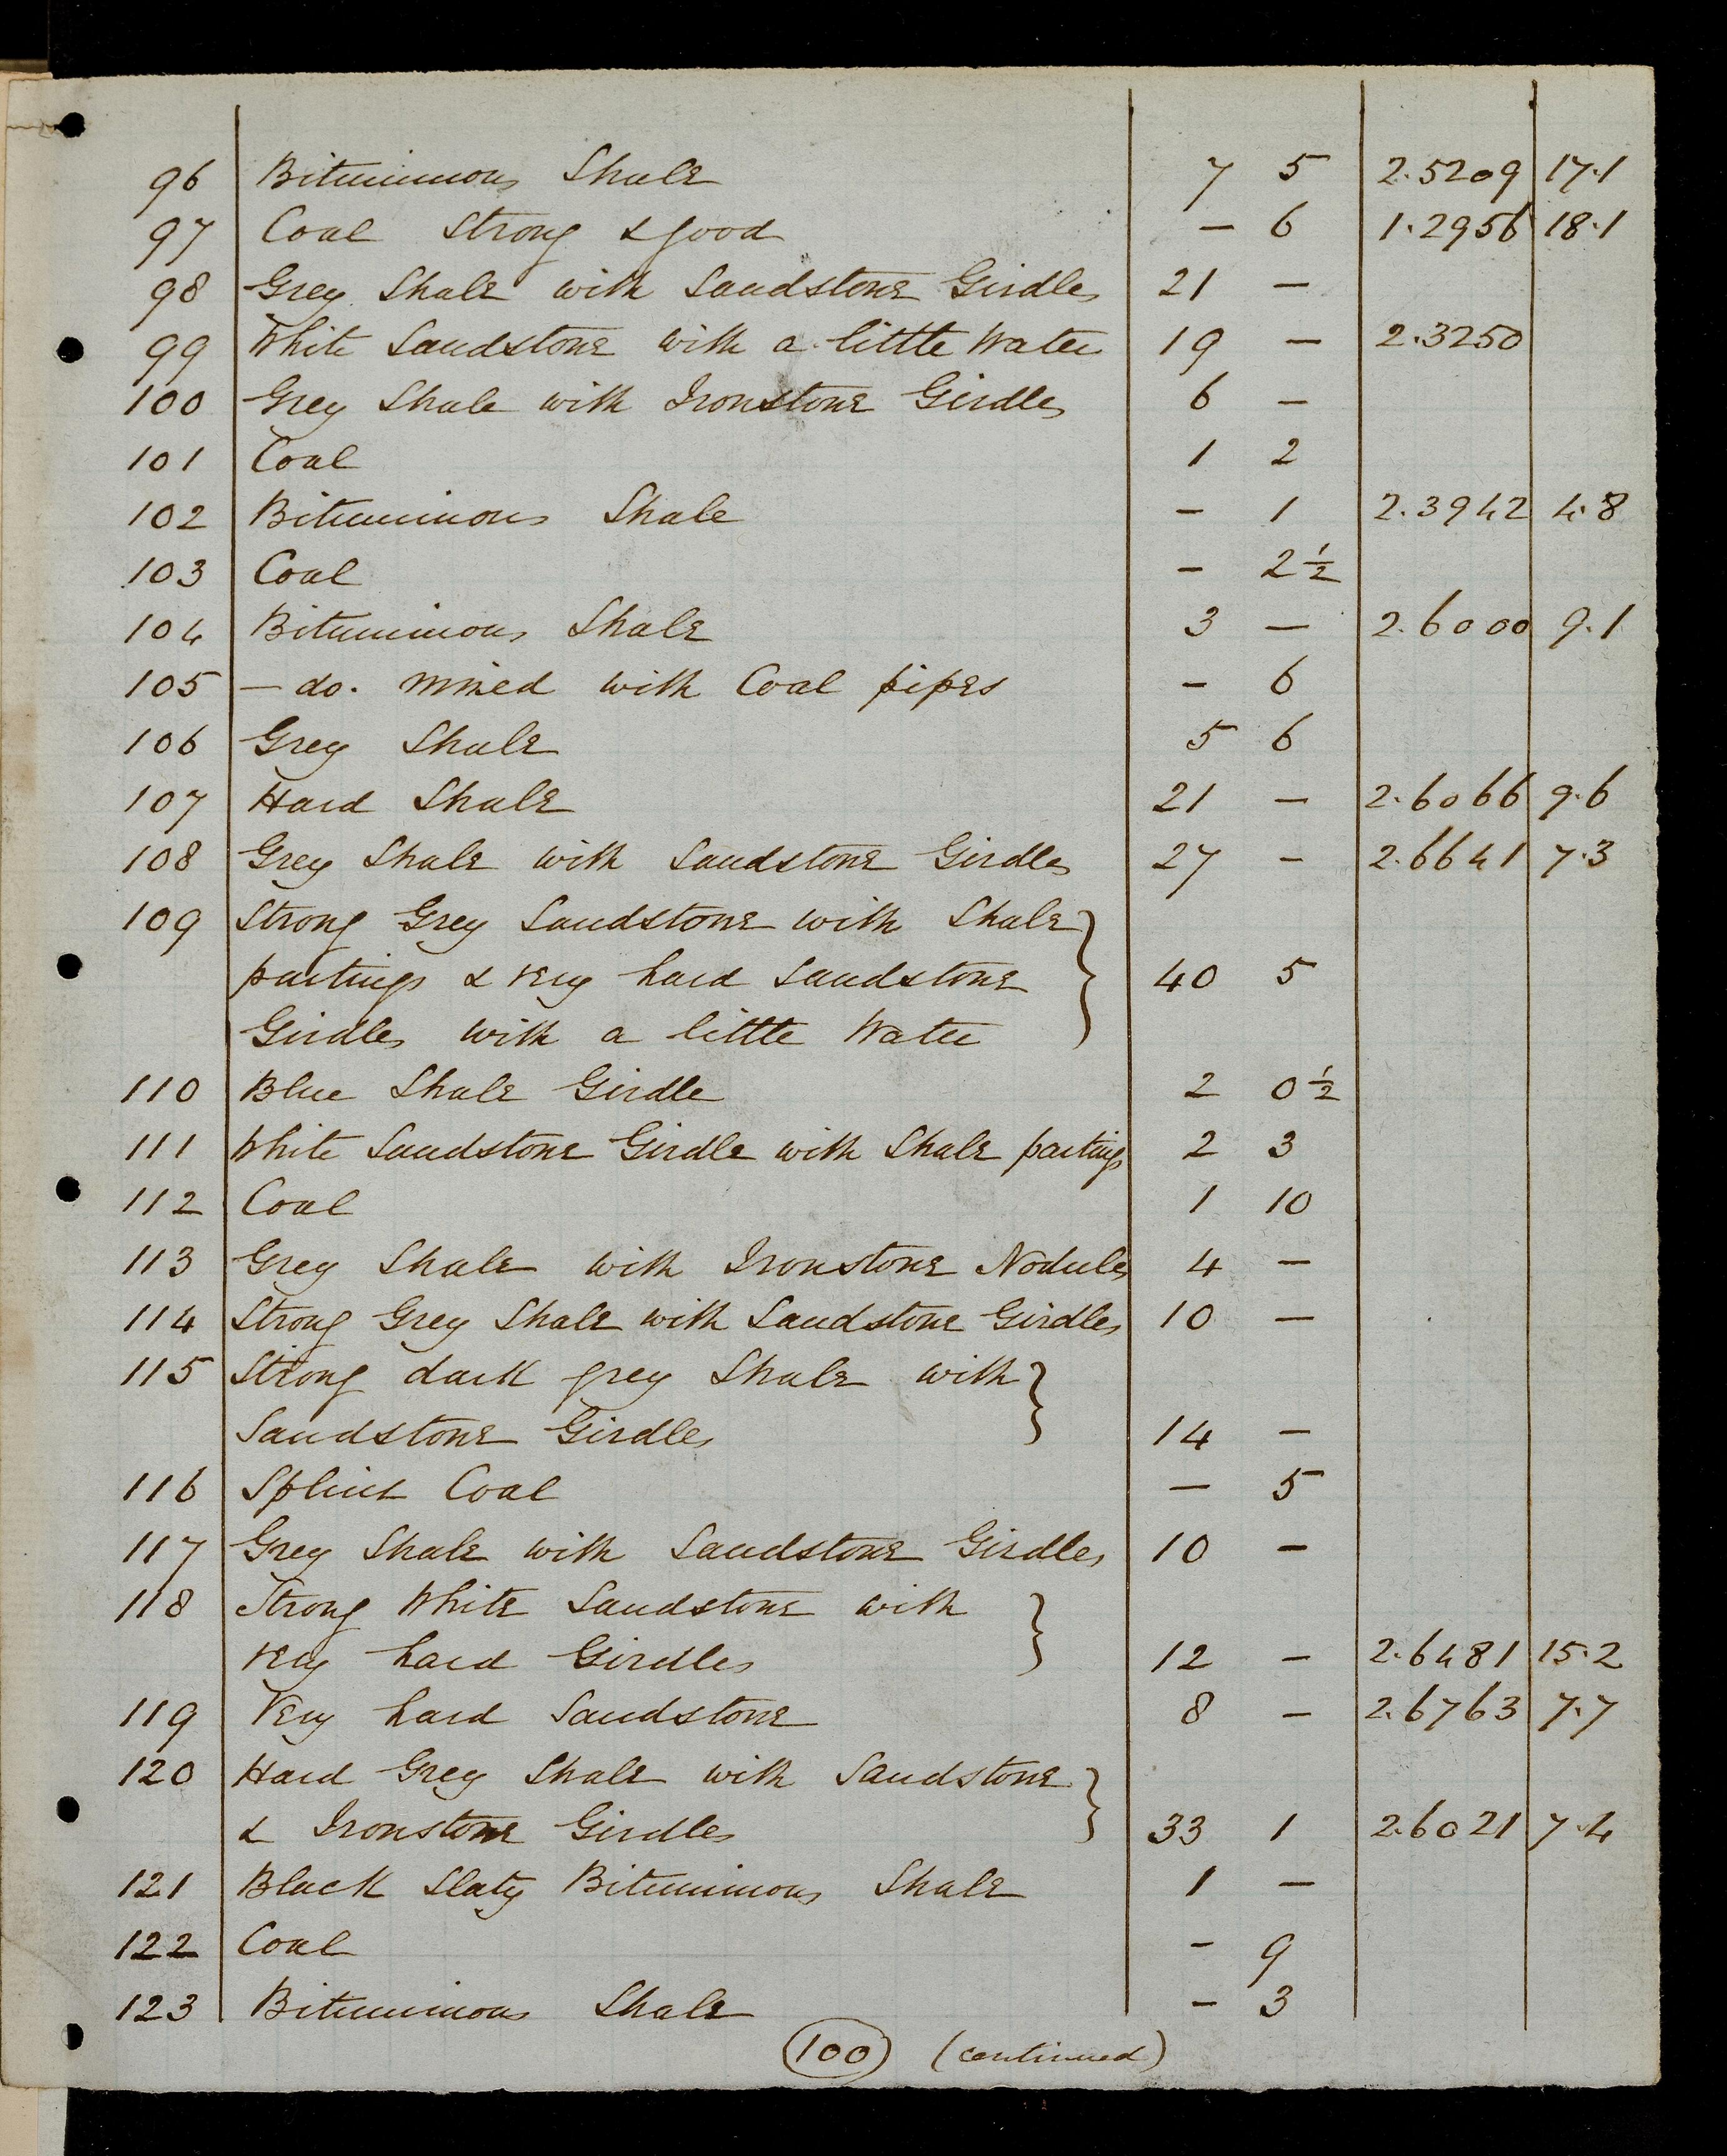 96 Bituminous Shale 7 5 2.5209 17.1
97 Coal Strong & good — 6 1.2956 18.1
98 Grey Shale with Sandstone Girdles 21 —
99 White Sandstone with a little Water 19 — 2.3250
100 Grey Shale with Ironstone Girdles 6 —
101 Coal 1 2
102 Bituminous Shale — 1 2.3942 4.8
103 Coal — 2½
104 Bituminous Shale 3 — 2.6000 9.1
105 — do. mixed with Coal pipes — 6
106 Grey Shale 5 6
107 Hard Shale 21 — 2.6066 9.6
108 Grey Shale with Sandstone Girdles 27 — 2.6641 7.3
109 Strong Grey Sandstone with Shale
partings & very hard Sandstone 40 5
Girdles with a little Water
110 Blue Shale Girdle 2 0½
111 White Sandstone Girdle with Shale partings 2 3
112 Coal 1 10
113 Grey Shale with Ironstone Nodules 4 —
114 Strong Grey Shale with Sandstone Girdles 10 —
115 Strong dark grey Shale with
Sandstone Girdles 14 —
116 Splint Coal — 5
117 Grey Shale with Sandstone Girdles 10 —
118 Strong White Sandstone with
very hard Girdles 12 — 2.6481 15.2
119 Very hard Sandstone 8 — 2.6763 7.7
120 Hard Grey Shale with Sandstone
& Ironstone Girdles 33 1 2.6021 7.4
121 Black Slaty Bituminous Shale 1 —
122 Coal — 9
123 Bituminous Shale — 3
100 (continued)